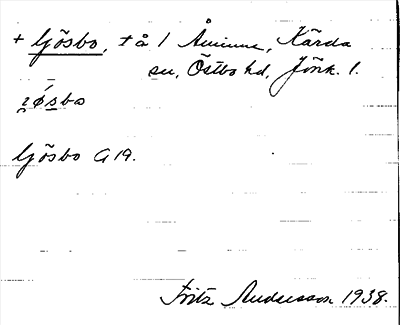 + Gösbo, + å / Åminne, Kärda
sn, Östbo hd, Jönk. l.
Gösbo G 19.
Fritz Andersson 1938.